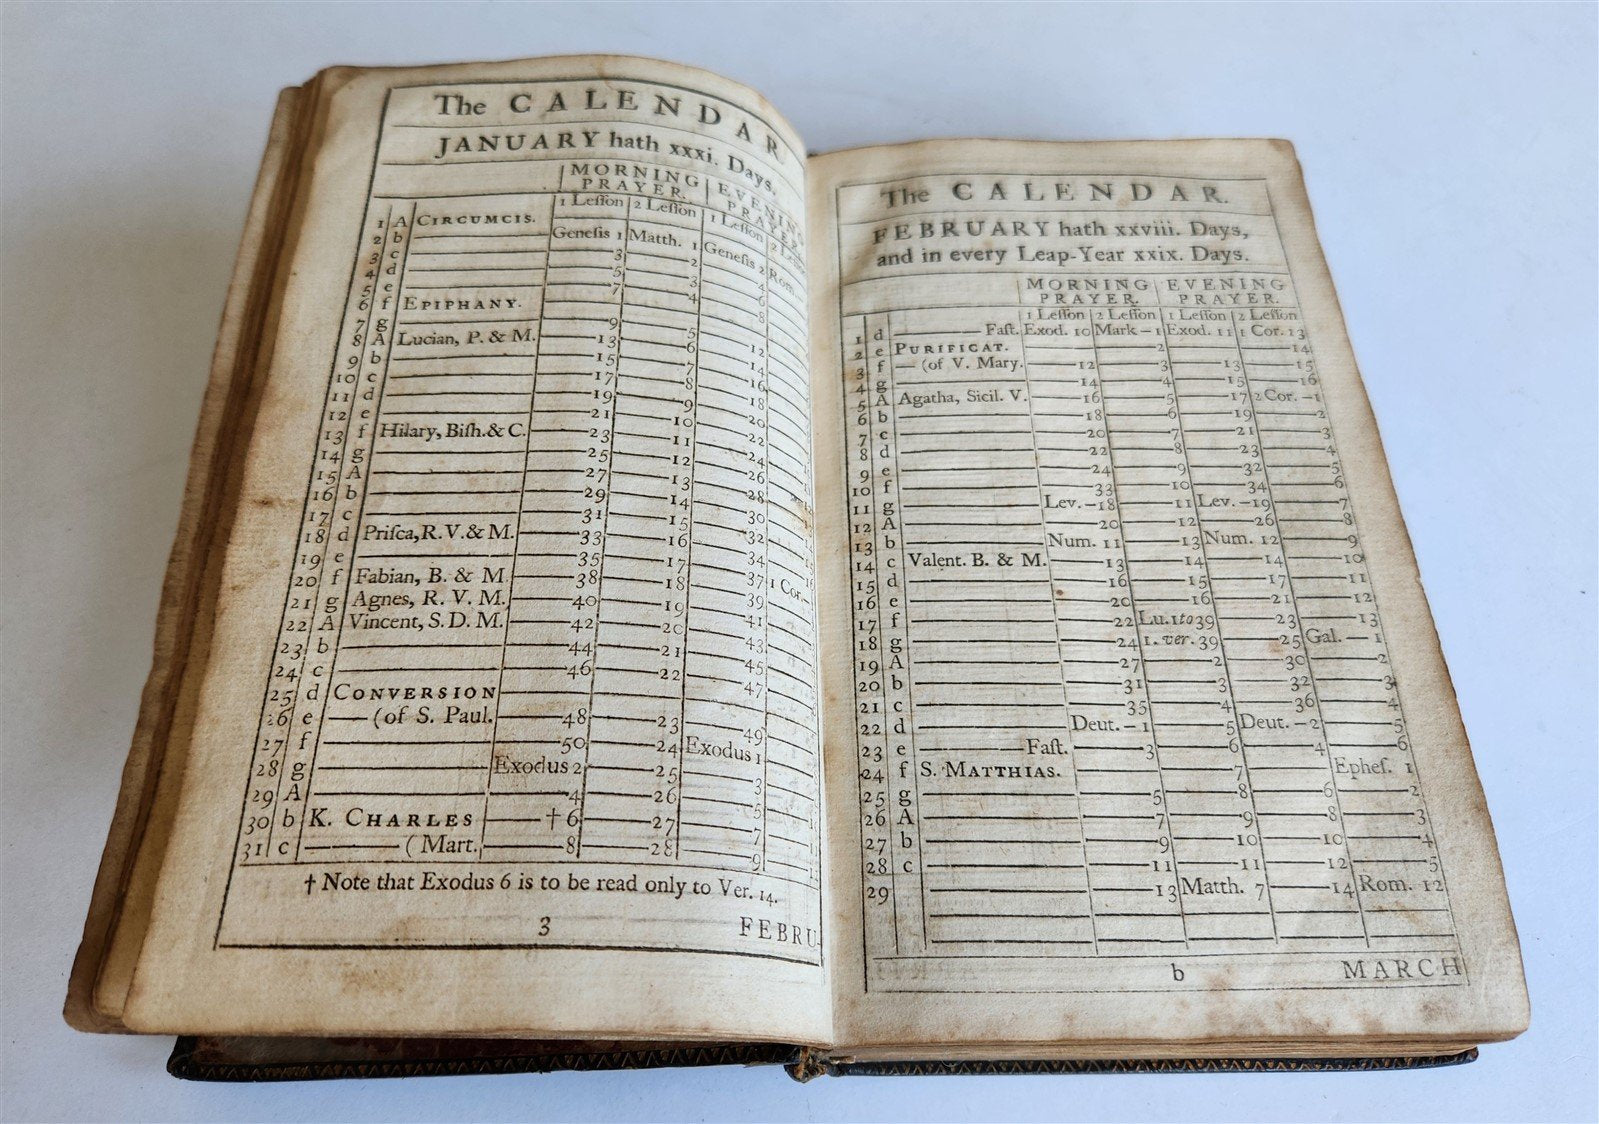 The CALENDAR.
JANUARY hath xxxi. Days.
MORNING PRAYER. EVENING PRAYER.
1 Leſſon 2 Leſſon 1 Leſſon 2 Leſſon
1 A CIRCUMCIS.
2 b Geneſis 1 Matth. 1 Geneſis 2 Rom.
3 c 3 2 4
4 d 5 3 6
5 e 7 4 8
6 f EPIPHANY.
7 g 9 5 12
8 A Lucian, P. & M. 13 6 14
9 b 15 7 16
10 c 17 8 18
11 d 19 9 20
12 e 21 10 22
13 f Hilary, Biſh. & C. 23 11 24
14 g 25 12 26
15 A 27 13 28
16 b 29 14 30
17 c 31 15 32
18 d Priſca, R. V. & M. 33 16 34
19 e 35 17 37 1 Cor.
20 f Fabian, B. & M. 38 18 39
21 g Agnes, R. V. M. 40 19 41
22 A Vincent, S. D. M. 42 20 43
23 b 44 21 45
24 c 46 22 47
25 d CONVERSION
26 e — (of S. Paul. 48 23 49
27 f 50 24 Exodus 1
28 g Exodus 2 25 3
29 A 4 26 5
30 b K. CHARLES † 6 27 7
31 c — (Mart. 8 28 9
† Note that Exodus 6 is to be read only to Ver. 14.
3 FEBRU-
The CALENDAR.
FEBRUARY hath xxviii. Days,
and in every Leap-Year xxix. Days.
MORNING PRAYER. EVENING PRAYER.
1 Leſſon 2 Leſſon 1 Leſſon 2 Leſſon
1 d — Faſt. Exod. 10 Mark — 1 Exod. 11 1 Cor. 13
2 e PURIFICAT. 2 14
3 f — (of V. Mary. 12 3 13 15
4 g 14 4 15 16
5 A Agatha, Sicil. V. 16 5 17 2 Cor. — 1
6 b 18 6 19 2
7 c 20 7 21 3
8 d 22 8 23 4
9 e 24 9 32 5
10 f 33 10 34 6
11 g Lev. — 18 11 Lev. — 19 7
12 A 20 12 26 8
13 b Num. 11 13 Num. 12 9
14 c Valent. B. & M. 13 14 14 10
15 d 16 15 17 11
16 e 20 16 21 12
17 f 22 Lu. 1 to 39 23 13
18 g 24 1. ver. 39 25 Gal. — 1
19 A 27 2 30 2
20 b 31 3 32 3
21 c 35 4 36 4
22 d Deut. — 1 5 Deut. — 2 5
23 e — Faſt. 3 6 4 6
24 f S. MATTHIAS. 7 Epheſ. 1
25 g 5 8 6 2
26 A 7 9 8 3
27 b 9 10 10 4
28 c 11 11 12 5
29 13 Matth. 7 14 Rom. 12
b MARCH